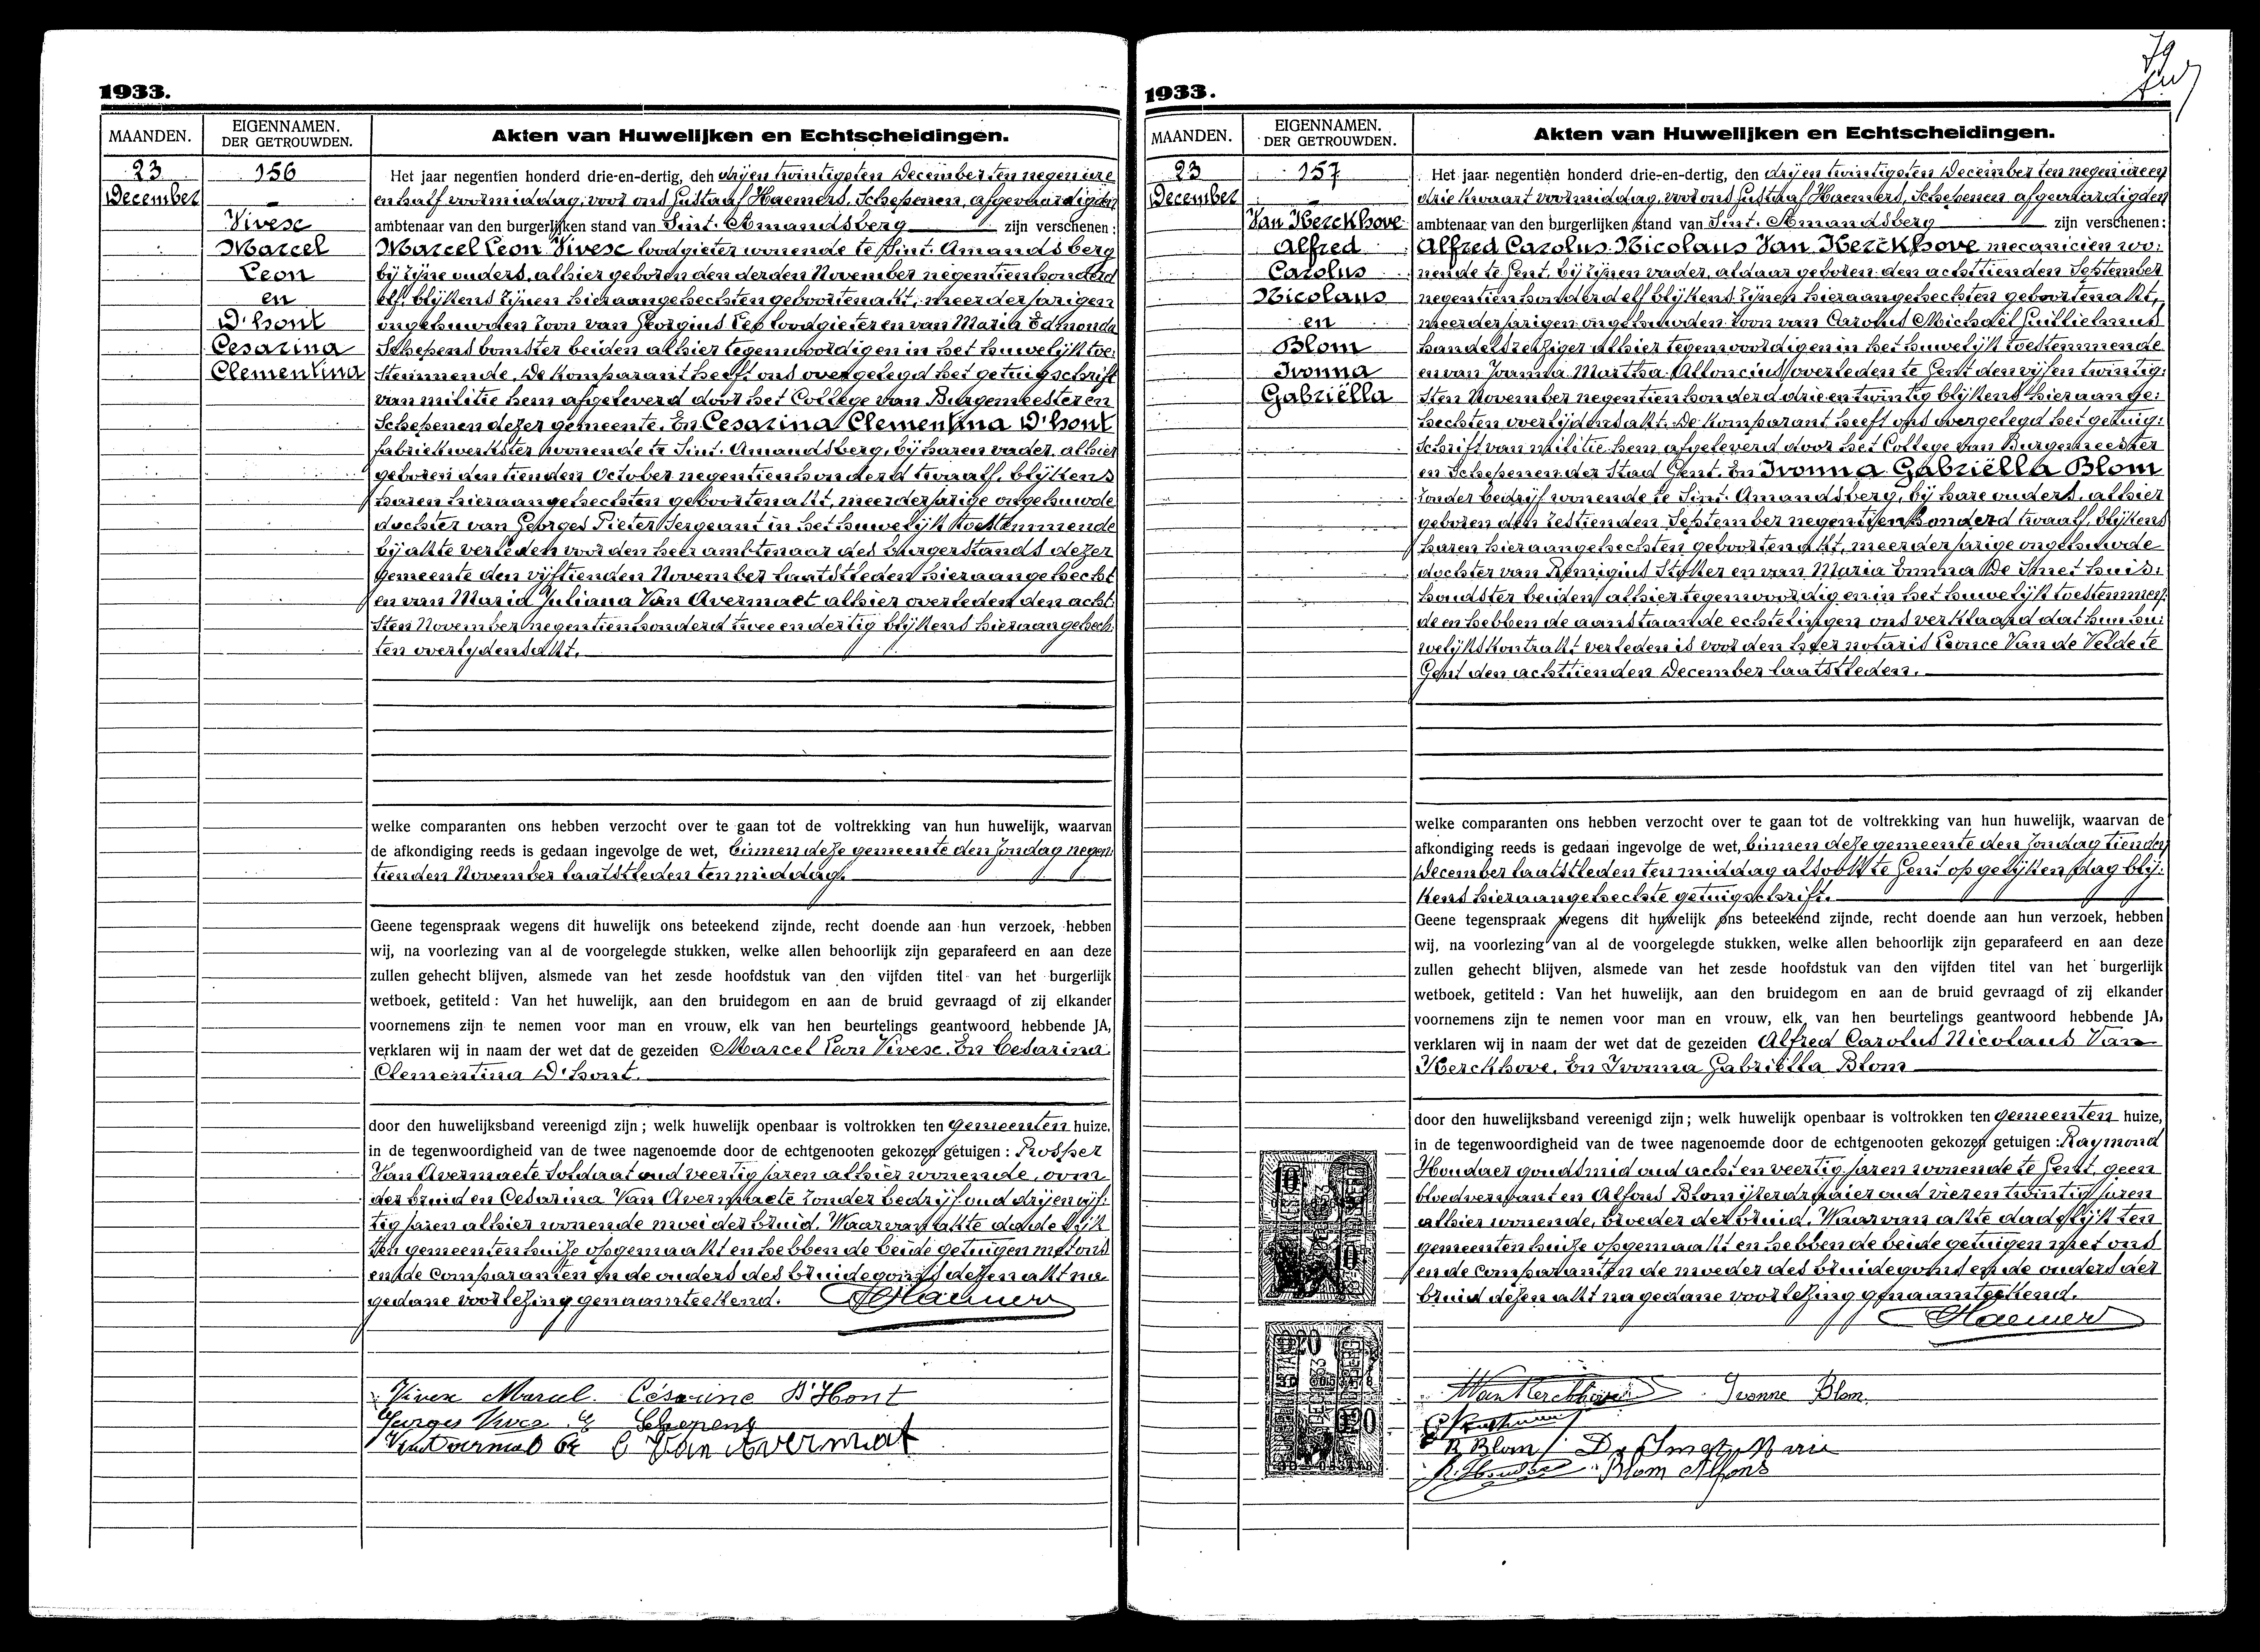 1933.
MAANDEN.
EIGENNAMEN.
DER GETROUWDEN.
Akten van Huwelijken en Echtscheidingen.
23
December
156
Vivese
Marcel
Leon
en
D'hont
Cesarina
Clementina
Het jaar negentien honderd drie-en-dertig, den drijen twintigsten December ten negen ure
en half voormiddag, voor ons Gustaaf Haemers, Schepenen, afgevaardigden
ambtenaar van den burgerlijken stand van Sint. Amandsberg zijn verschenen:
Marcel Leon Vivese loodgieter wonende te Sint. Amandsberg
bij zijne ouders, alhier geboren den derden November negentienhonderd
elf. blijkens zijnen hieraangehechten geboortenakt, meerderjarigen
ongehuwden zoon van Georgius Leo loodgieter en van Maria Edmonda
Schepens bomster beiden alhier tegenwoordig en in het huwelijk toe:
stemmende. De komparant heeft ons overgelegd het getuigschrift
van militie hem afgeleverd door het College van Burgemeester en
Schepenen dezer gemeente. En Cesarina Clementina D'hont
fabriekwerkster wonende te Sint. Amandsberg, bij haren vader, alhier
geboren den tienden October negentienhonderd twaalf, blijkens
haren hieraangehechten geboortenakt, meerderjarige ongehuwde
dochter van Georges Pieter Sergeant in het huwelijk toestemmende
bij akte verleden voor den heer ambtenaar des burgerstands dezer
gemeente den vijftienden November laatstleden hieraangehecht
en van Maria Juliana Van Avermaet alhier overleden den acht:
sten November negentienhonderd twee en dertig blijkens hieraangehech:
ten overlijdensakt.
welke comparanten ons hebben verzocht over te gaan tot de voltrekking van hun huwelijk, waarvan
de afkondiging reeds is gedaan ingevolge de wet, binnen deze gemeente den Zondag negen:
tienden November laatstleden ten middag.
Geene tegenspraak wegens dit huwelijk ons beteekend zijnde, recht doende aan hun verzoek, hebben
wij, na voorlezing van al de voorgelegde stukken, welke allen behoorlijk zijn geparafeerd en aan deze
zullen gehecht blijven, alsmede van het zesde hoofdstuk van den vijfden titel van het burgerlijk
wetboek, getiteld: Van het huwelijk, aan den bruidegom en aan de bruid gevraagd of zij elkander
voornemens zijn te nemen voor man en vrouw, elk van hen beurtelings geantwoord hebbende JA,
verklaren wij in naam der wet dat de gezeiden Marcel Leon Vivese. En Cesarina
Clementina D'hont.
door den huwelijksband vereenigd zijn; welk huwelijk openbaar is voltrokken ten gemeenten huize,
in de tegenwoordigheid van de twee nagenoemde door de echtgenooten gekozen getuigen: Prosper
Van Avermaete soldaat oud veertig jaren alhier wonende, oom
der bruid en Cesarina Van Avermaete zonder bedrijf oud drijenvijf:
tig jaren alhier wonende moei der bruid. Waarvan akte dadelijk
ten gemeentenhuize opgemaakt en hebben de beide getuigen met ons
en de comparanten en de ouders des bruidegoms dezen akt na
gedane voorlezing genaamteekend. Haemers
Vivese Marcel. Césarine D'Hont
Georges Schepens
Van Avermaet
1933.
MAANDEN.
EIGENNAMEN.
DER GETROUWDEN.
Akten van Huwelijken en Echtscheidingen.
23
December
157
Van Kerckhove
Alfred
Carolus
Nicolaus
en
Blom
Ivonna
Gabriëlla
Het jaar negentien honderd drie-en-dertig, den drijen twintigsten December ten negen uren
drie kwaart voormiddag, voor ons Gustaaf Haemers, Schepenen afgevaardigden
ambtenaar van den burgerlijken stand van Sint. Amandsberg zijn verschenen:
Alfred Carolus Nicolaus Van Kerckhove mecanicien wo:
nende te Gent, bij zijnen vader, aldaar geboren den achttienden September
negentienhonderd elf blijkens zijnen hieraangehechten geboortenakt,
meerderjarigen ongehuwden zoon van Carolus Michaël Guilielmus
handelsreiziger alhier tegenwoordig en in het huwelijk toestemmende
en van Joanna Martha Alloncius overleden te Gent den vijfen twintig:
sten November negentienhonderd drie en twintig blijkens hieraange:
hechten overlijdensakt. De komparant heeft ons overgelegd het getuig:
schrift van militie hem afgeleverd door het College van Burgemeester
en Schepenen der Stad Gent. En Ivonna Gabriëlla Blom
zonder bedrijf wonende te Sint. Amandsberg, bij hare ouders, alhier
geboren den zestienden September negentienhonderd twaalf, blijkens
haren hieraangehechten geboortenakt, meerderjarige ongehuwde
dochter van Remigius Stoker en van Maria Emma De Smet huis:
houdster beiden alhier tegenwoordig en in het huwelijk toestemmen:
de en hebben de aanstaande echtelingen ons verklaard dat hun hu:
welijkskontrakt verleden is voor den heer notaris Leonce Van de Velde te
Gent den achttienden December laatstleden.
welke comparanten ons hebben verzocht over te gaan tot de voltrekking van hun huwelijk, waarvan de
afkondiging reeds is gedaan ingevolge de wet, binnen deze gemeente den Zondag tienden
December laatstleden ten middag alsook te Gent op gelijken dag blij:
kens hieraangehechte getuigschrift.
Geene tegenspraak wegens dit huwelijk ons beteekend zijnde, recht doende aan hun verzoek, hebben
wij, na voorlezing van al de voorgelegde stukken, welke allen behoorlijk zijn geparafeerd en aan deze
zullen gehecht blijven, alsmede van het zesde hoofdstuk van den vijfden titel van het burgerlijk
wetboek, getiteld: Van het huwelijk, aan den bruidegom en aan de bruid gevraagd of zij elkander
voornemens zijn te nemen voor man en vrouw, elk van hen beurtelings geantwoord hebbende JA,
verklaren wij in naam der wet dat de gezeiden Alfred Carolus Nicolaus Van
Kerckhove. En Ivonna Gabriëlla Blom
door den huwelijksband vereenigd zijn; welk huwelijk openbaar is voltrokken ten gemeenten huize,
in de tegenwoordigheid van de twee nagenoemde door de echtgenooten gekozen getuigen: Raymond
Houdaer goudsmid oud acht en veertig jaren wonende te Gent, geen
bloedverwant en Alfons Blom ijzerdraaier oud vier en twintig jaren
alhier wonende, broeder der bruid. Waarvan akte dadelijk ten
gemeentenhuize opgemaakt en hebben de beide getuigen met ons
en de comparanten de moeder des bruidegoms en de ouders der
bruid dezen akt na gedane voorlezing genaamteekend.
Haemers
Van Kerckhove Ivonne Blom.
R Blom De Smet Marie
Blom Alfons